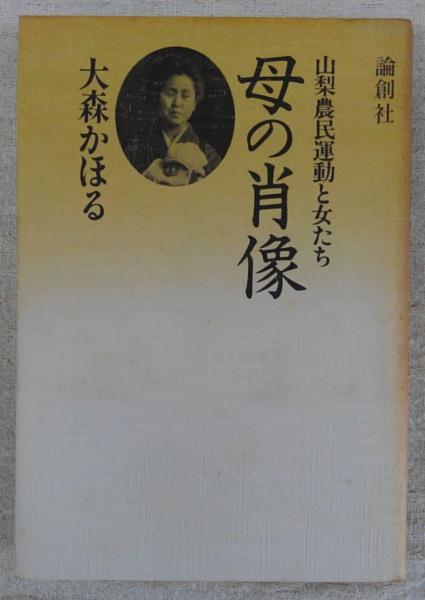 論創社
山梨農民運動と女たち
母の肖像
大森かほる